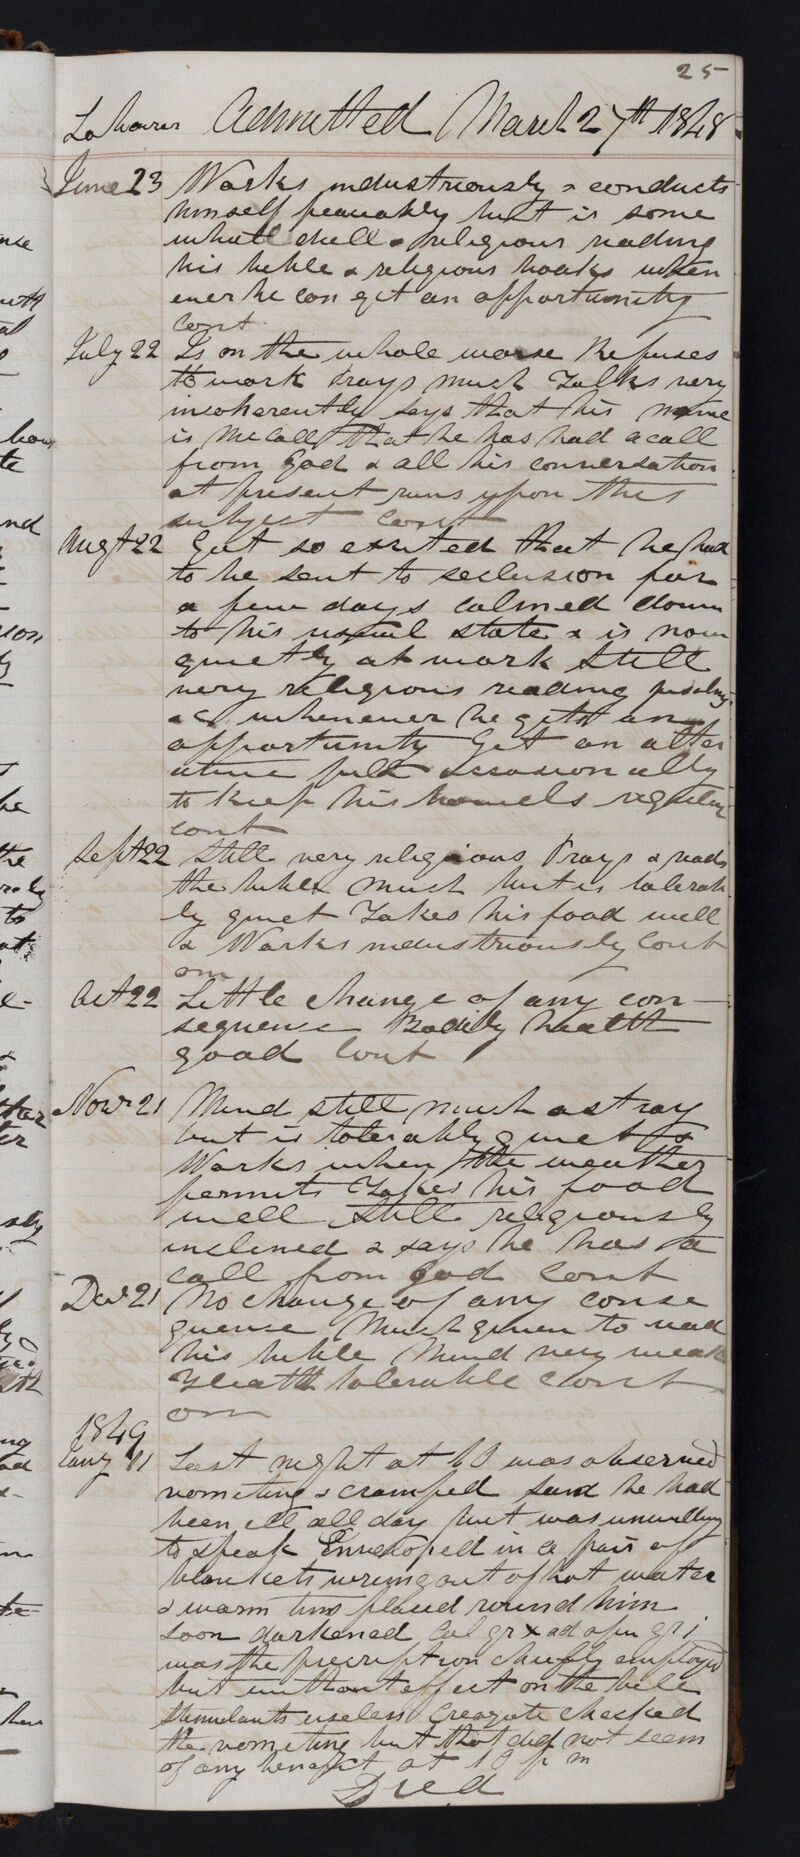 25
Labourer Admitted March 27th 1848
June 23 Works industriously & conducts
himself peaceably but is some
what dull & religious reading
his bible & religious books when
ever he can get an opportunity
cont
July 22 Is on the whole worse Refuses
to work Prays much Talks very
incoherently says that his name
is McCall that he has had a call
from God & all his conversation
at present runs upon this
subject Cont
Augt 22 Got so excited that he had
to be sent to seclusion for
a few days calmed down
to his usual state & is now
quietly at work Still
very religious reading psalms
&c whenever he gets an
opportunity Get an alter
ative pill occasionally
to keep his bowels regular
cont
Sept 22 Still very religious Prays & reads
the bible much but is tolerab
ly quiet Takes his food well
& Works industriously Cont
om
Oct 22 Little change of any con-
sequence Bodily health
good Cont
Novr 21 Mind still much astray
but is tolerably quiet &
Works when the weather
permits Takes his food
well Still religiously
inclined & says he has a
call from God Cont
Decr 21 No change of any conse
quence Much given to read
his bible Mind very weak
Health tolerable Cont
om
1849
Jany 11 Last night at 10 was observed
vomiting & cramped Said he had
been ill all day but was unwilling
to speak Enveloped in a pair of
blankets wrung out of hot water
& warm tins placed round him
soon darkened Cal gr x ad opii gr i
was the prescription chiefly employed
but without effect on the bile
Stimulants useless Creazote checked
the vomiting but that did not seem
of any benefit at 10 p m
Died